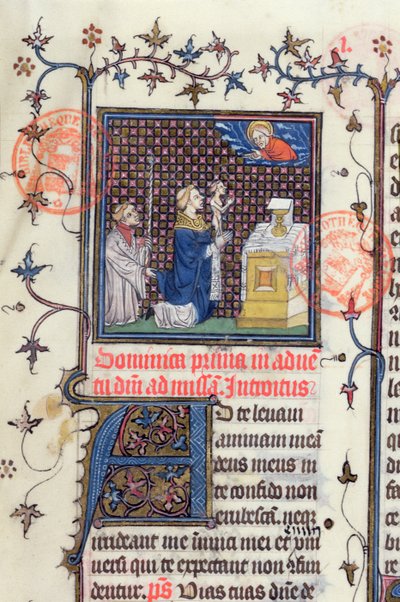 1.
Dominica prima in aduē
tu dn̄i ad missā. Introitus
AD te leuaui
animam meā
deus meus in
te confido non
erubescā. neqȝ
irrideant me īimici mei et vni
uersi qui te expectant non ɔfun
dentur. ps̄ Uias tuas dn̄e de